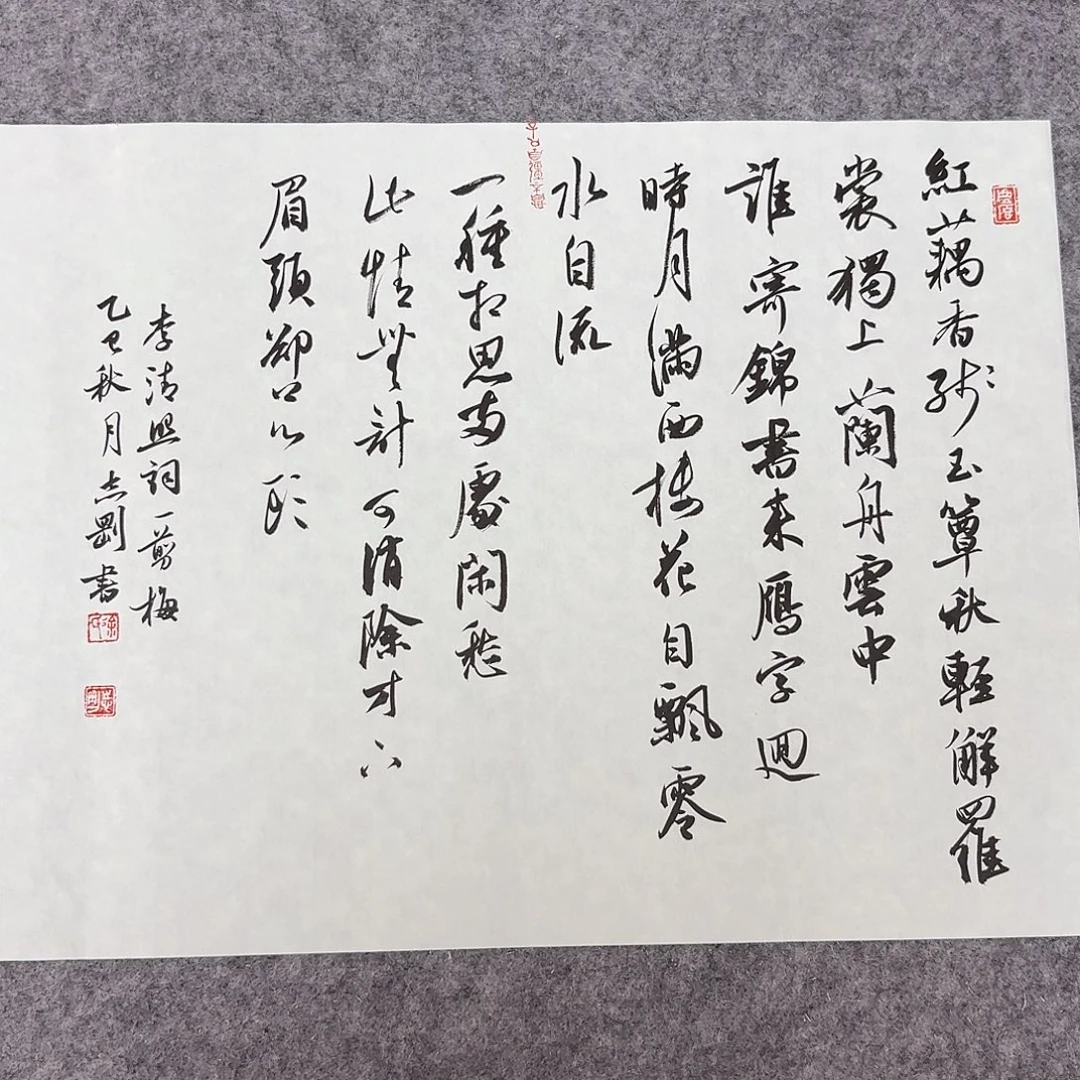 紅藕香殘玉簟秋輕解羅
裳獨上蘭舟雲中
誰寄錦書來鴈字迴
時月滿西樓花自飄零
水自流
一種相思兩處閑愁
此情無計可消除才下
眉頭卻上心頭
李清照詞一剪梅
乙巳秋月志剛書